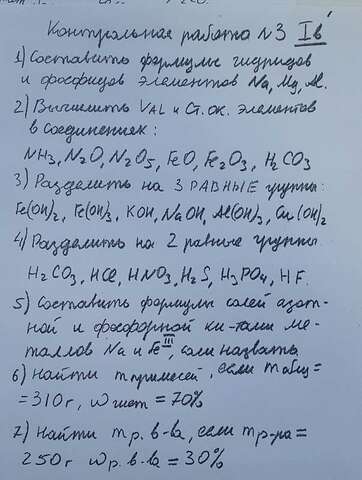 Контрольная работа №3 Iв
1) Составить формулы гидридов
и фосфидов элементов Na, Mg, Al.
2) Вычислить VAL и Ст.ок. элементов
в соединениях:
NH3, N2O, N2O5, FeO, Fe2O3, H2CO3
3) Разделить на 3 РАВНЫЕ группы:
Fe(OH)2, Fe(OH)3, KOH, NaOH, Al(OH)3, Cu(OH)2
4) Разделить на 2 равные группы
H2CO3, HCl, HNO3, H2S, H3PO4, HF.
5) Составить формулы солей азот-
ной и фосфорной ки-тами ме-
таллов Na и Fe III, соли назвать
6) Найти m примесей, если m общ =
= 310 г, w чист = 70%
7) Найти m р. в-ва, если m р-ра =
250 г w р. в-ва = 30%